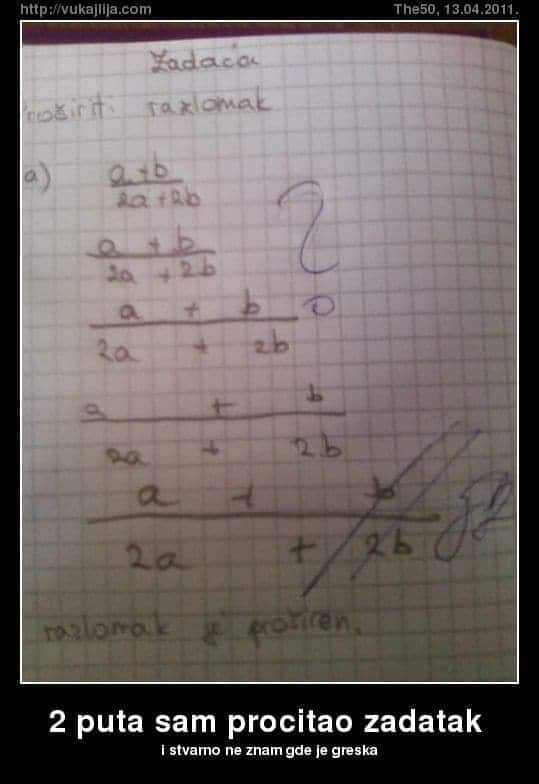 http://vukajlija.com
The50, 13.04.2011.
Zadaća
roširiti razlomak
a)
a+b
2a+2b
a + b
2a + 2b
a + b
2a + 2b
a + b
2a + 2b
a + b
2a + 2b
?
razlomak je proširen.
2 puta sam procitao zadatak
i stvarno ne znam gde je greska